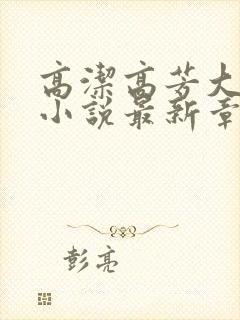 高潔高芳大
小說最新章
彭亮